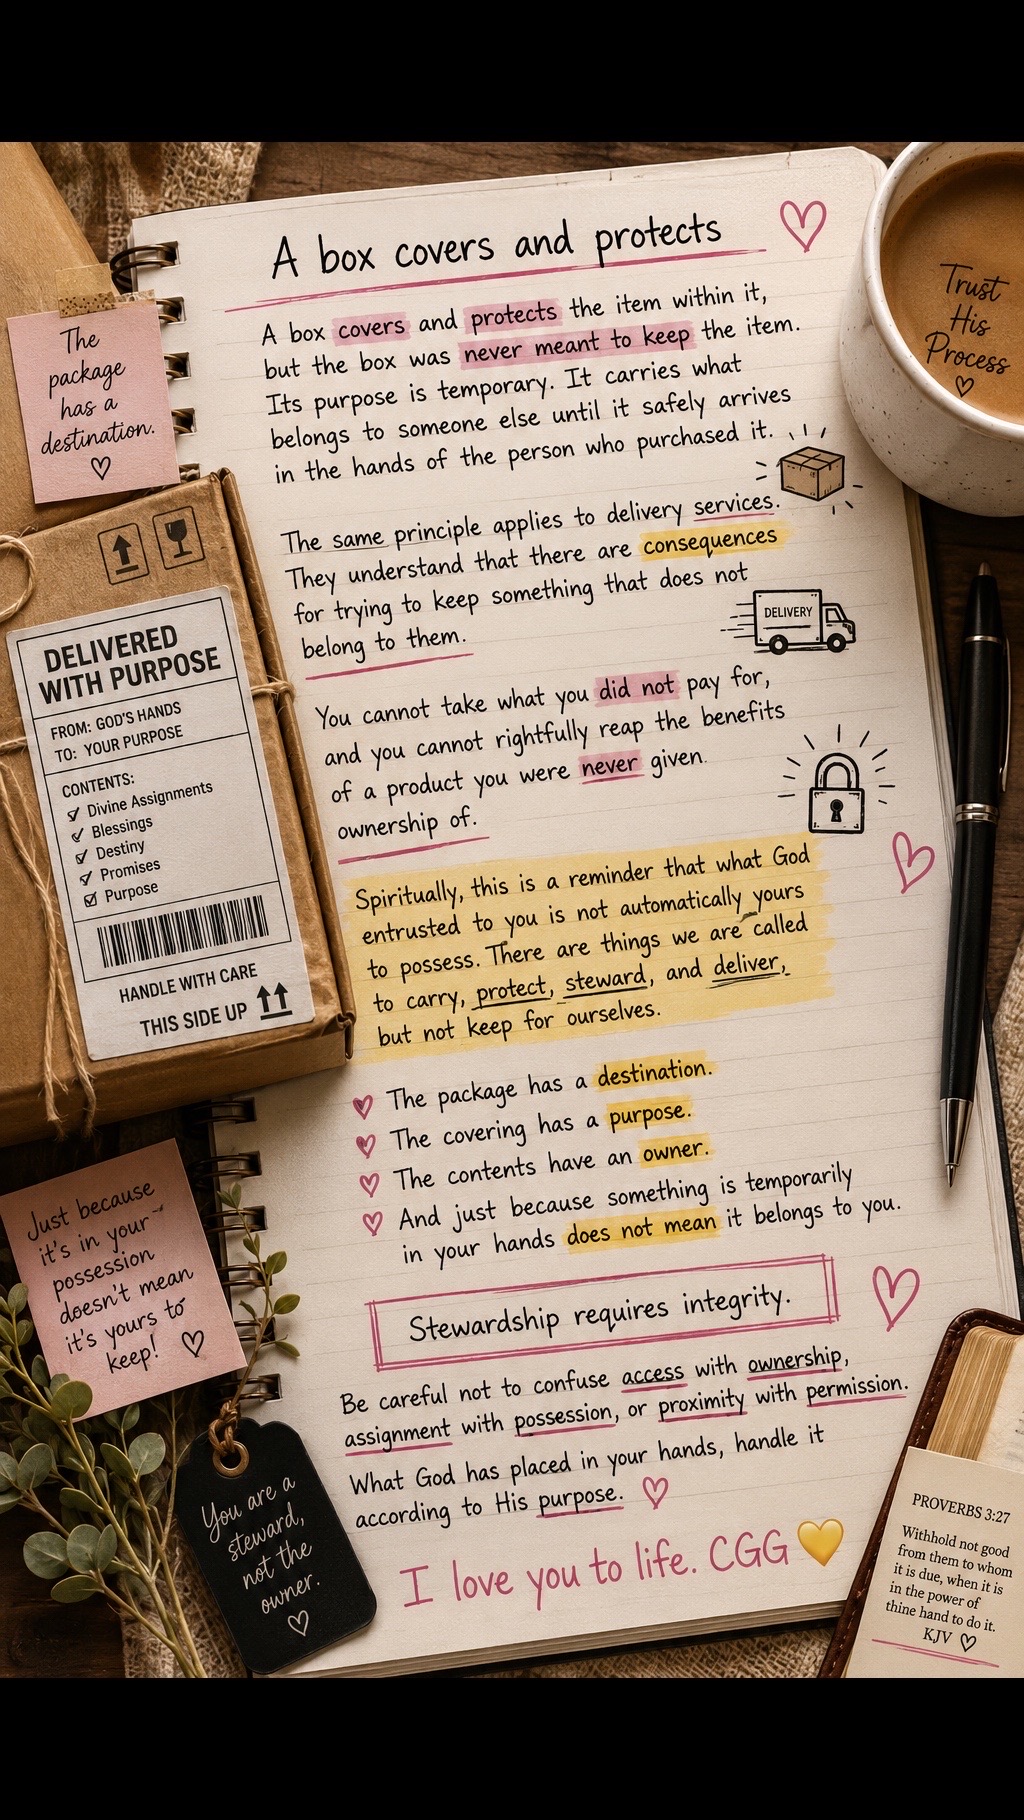 A box covers and protects
A box covers and protects the item within it,
but the box was never meant to keep the item.
Its purpose is temporary. It carries what
belongs to someone else until it safely arrives
in the hands of the person who purchased it.
The same principle applies to delivery services.
They understand that there are consequences
for trying to keep something that does not
belong to them.
DELIVERY
You cannot take what you did not pay for,
and you cannot rightfully reap the benefits
of a product you were never given.
ownership of.
Spiritually, this is a reminder that what God
entrusted to you is not automatically yours
to possess. There are things we are called
to carry, protect, steward, and deliver,
but not keep for ourselves.
The package has a destination.
The covering has a purpose.
The contents have an owner.
And just because something is temporarily
in your hands does not mean it belongs to you.
Stewardship requires integrity.
Be careful not to confuse access with ownership,
assignment with possession, or proximity with permission.
What God has placed in your hands, handle it
according to His purpose.
I love you to life. CGG 💛
The
package
has a
destination.
DELIVERED
WITH PURPOSE
FROM: GOD'S HANDS
TO: YOUR PURPOSE
CONTENTS:
Divine Assignments
Blessings
Destiny
Promises
Purpose
HANDLE WITH CARE
THIS SIDE UP
Just because
it's in your
possession
doesn't mean
it's yours to
keep!
You are a
steward,
not the
owner.
Trust
His
Process
PROVERBS 3:27
Withhold not good
from them to whom
it is due, when it is
in the power of
thine hand to do it.
KJV